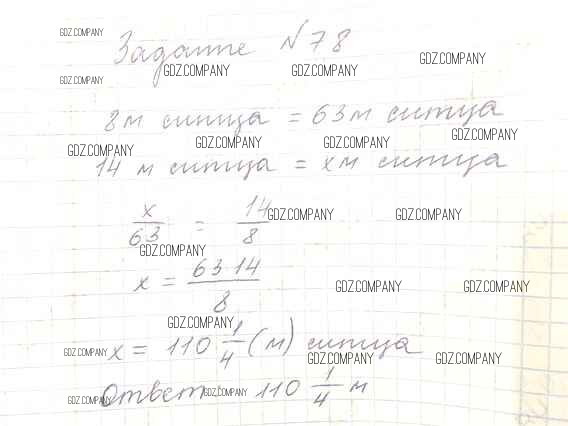 GDZ.COMPANY
Задание №78
GDZ.COMPANY GDZ.COMPANY GDZ.COMPANY
GDZ.COMPANY
8м ситца = 63м ситца
GDZ.COMPANY GDZ.COMPANY GDZ.COMPANY GDZ.COMPANY
14 м ситца = хм ситца
x/63 = 14/8
GDZ.COMPANY GDZ.COMPANY
GDZ.COMPANY
x = 63 14/8
GDZ.COMPANY GDZ.COMPANY
GDZ.COMPANY
x = 110 1/4 (м) ситца
GDZ.COMPANY GDZ.COMPANY GDZ.COMPANY
Ответ 110 1/4 м
GDZ.COMPANY GDZ.COMPANY